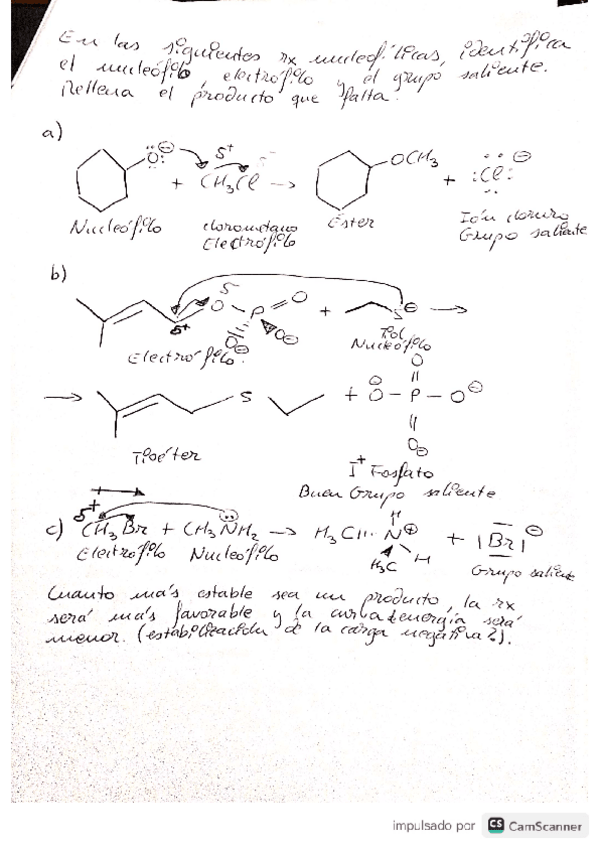 En las siguientes rx nucleofílicas, identifica
el nucleófilo, electrófilo y el grupo saliente.
Rellena el producto que falta.
a)
O ⊖ δ+ δ-
+ CH3Cl → OCH3 + :Cl: ⊖
Nucleófilo clorometano Ester Ión cloruro
Electrófilo Grupo saliente
b)
δ- O P O + S⊖ →
δ+ O⊖ O⊖
Electrófilo. Tiol
Nucleófilo
→ S + O - P - O⊖
O
O⊖
Tioéter
I+ Fosfato
Buen Grupo saliente
c) δ+ CH3Br + CH3NH2 → H3C N⊕ H H H3C + |Br| ⊖
Electrófilo Nucleófilo Grupo saliente
Cuanto más estable sea un producto, la rx
será más favorable y la energía será
menor. (estabilización de la carga negativa?).
impulsado por CS CamScanner